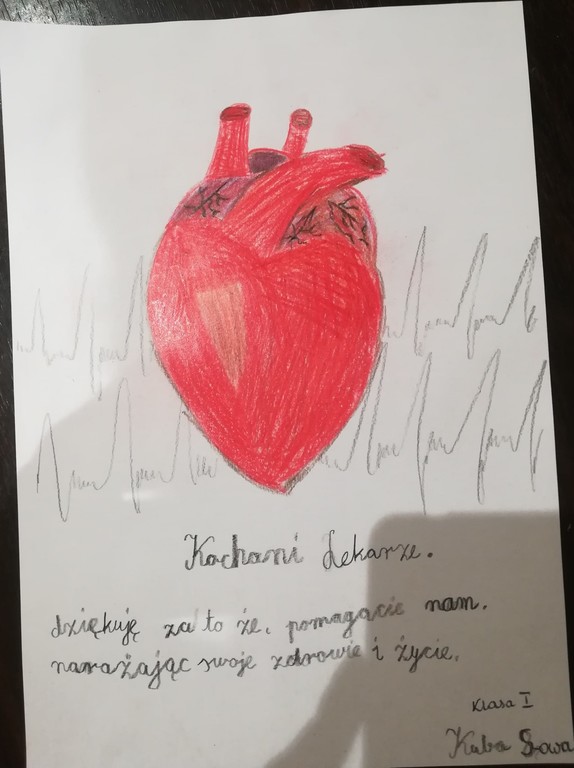 Kochani Lekarze.
dziękuję za to że. pomagacie nam.
narażając swoje zdrowie i życie.
Klasa I
Kuba Sowa